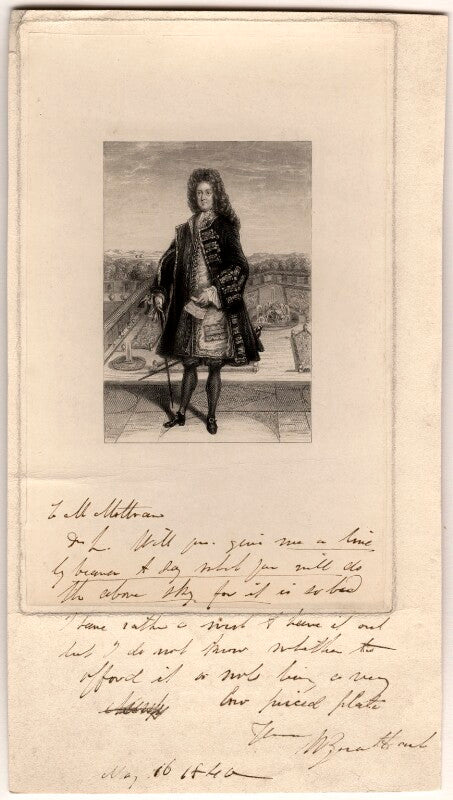 C M Mottram
Dr Sr. Will you give me a line
by bearer & say what you will do
the above sky for it is so bad
I have rather a mind to have it out
but I do not know whether to
afford it or not being a very
low priced plate
May 16 1840